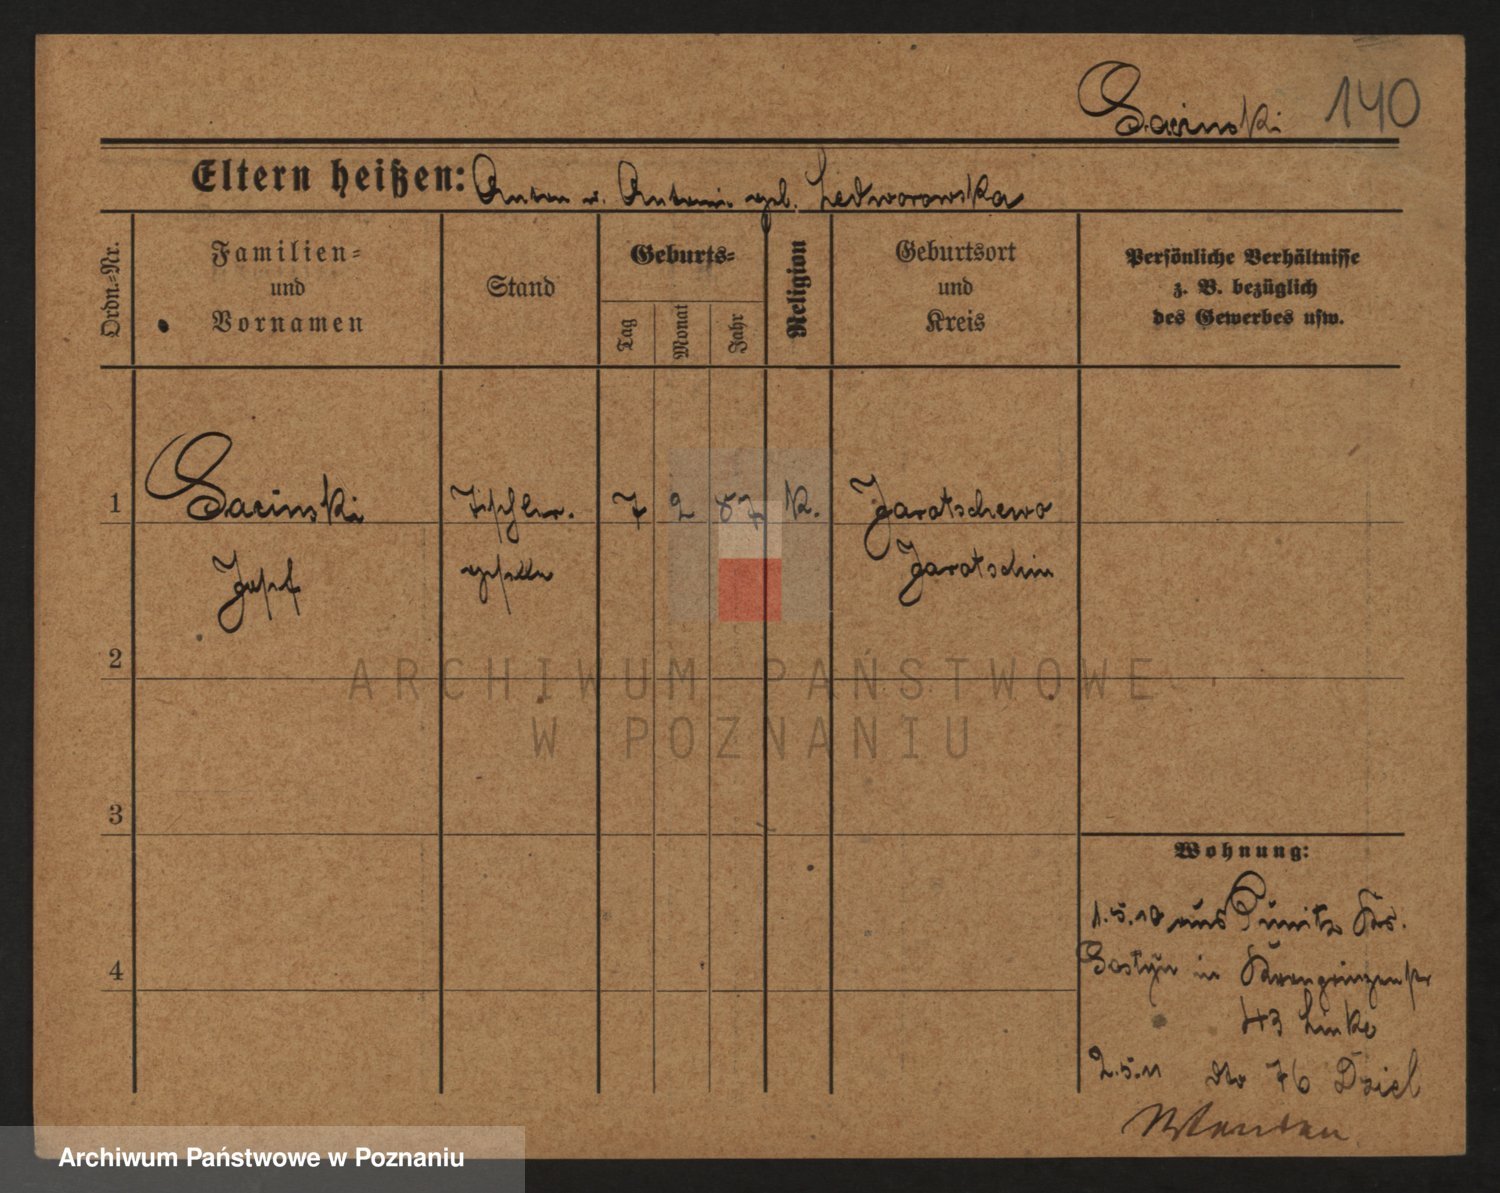 Sacinski 140
Eltern heißen: Anton u. Antonie geb. Ledworowska
Ordn.-Nr.
Familien-
und
Vornamen
Stand
Geburts-
Tag
Monat
Jahr
Religion
Geburtsort
und
Kreis
Persönliche Verhältnisse
z. B. bezüglich
des Gewerbes usw.
1 Sacinski Tischler- 7 2 87 K. Jaratschewo
Josef geselle Jarotschin
2
3
4
Wohnung:
1.5.10 aus Punitz Krs.
Gostyn in Kronprinzenstr
43 Linke
2.5.11 dto 76 Dziel
ARCHIWUM PAŃSTWOWE
W POZNANIU
Archiwum Państwowe w Poznaniu